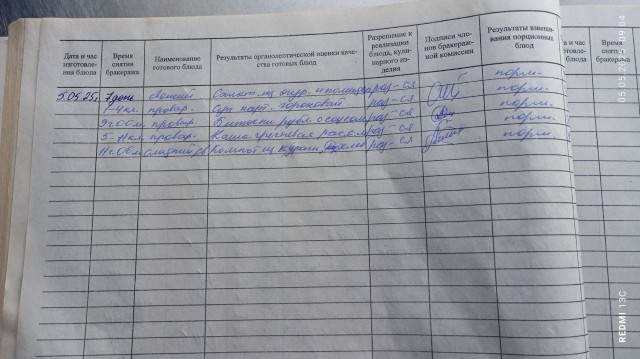 Дата и час изготовления блюда
Время снятия бракеража
Наименование готового блюда
Результаты органолептической оценки качества готовых блюд
Разрешение к реализации блюда, кулинарного изделия
Подписи членов бракеражной комиссии
Результаты взвешивания порционных блюд
5.05.25г. 7 день свежий Салат из огур. и помидор раз-ся норм.
-4кл. провар. Суп карт. гороховый раз-ся норм.
9ч.00м. провар. Биточки рубл. с соусом раз-ся норм.
5- кл. провар. Каша гречневая рассып раз-ся норм.
Компот из кураги раз-ся норм.
Время снятия бракеража
REDMI 13C
09:04